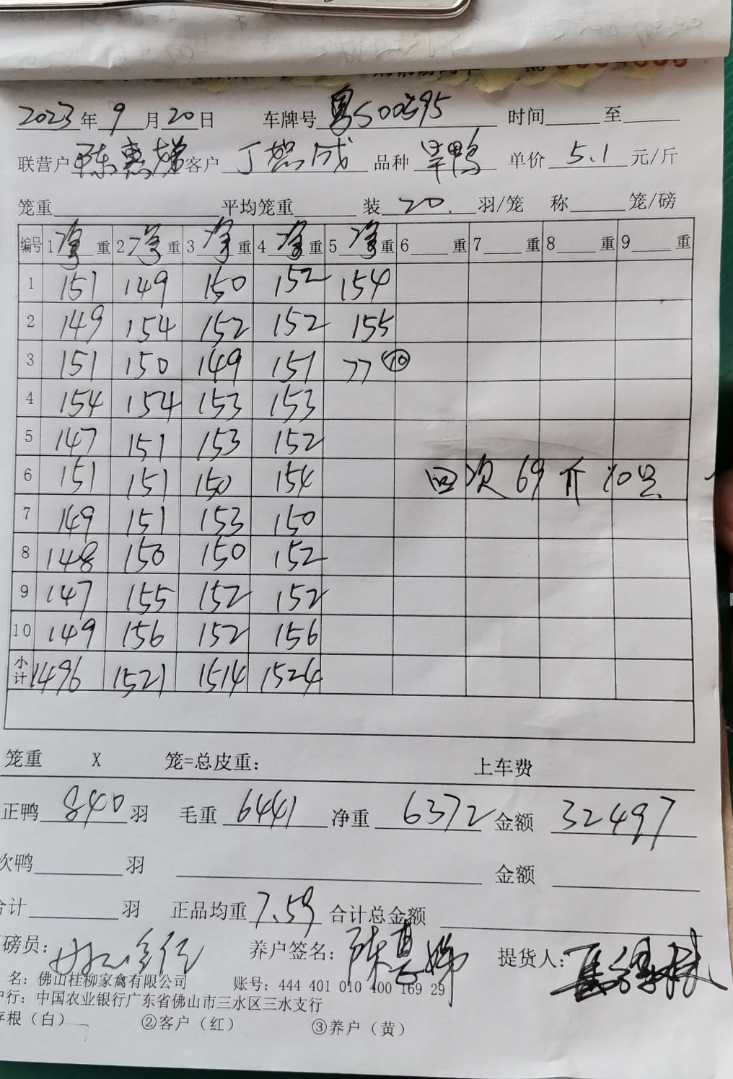 2023年 9 月 20 日 车牌号 粤S00395 时间 至
联营户 陈惠娣 客户 丁贺成 品种 旱鸭 单价 5.1 元/斤
笼重 平均笼重 装 20 羽/笼 称 笼/磅
编号 1 净 重 2 净 重 3 净 重 4 净 重 5 净 重 6 重 7 重 8 重 9 重
1 151 149 150 152 154
2 149 154 152 152 155
3 151 150 149 151 77 ⑩
4 154 154 153 153
5 147 151 153 152
6 151 151 150 154 回次 69斤 10只
7 149 151 153 150
8 148 150 150 152
9 147 155 152 152
10 149 156 152 156
小计 1496 1521 1514 1524
笼重 X 笼=总皮重: 上车费
正鸭 840 羽 毛重 6441 净重 6372 金额 32497
次鸭 羽 金额
合计 羽 正品均重 7.59 合计总金额
磅员: 养户签名: 陈惠娣 提货人:
名: 佛山桂柳家禽有限公司 账号: 444 401 010 400 169 29
户行: 中国农业银行广东省佛山市三水区三水支行
存根(白) ②客户(红) ③养户(黄)